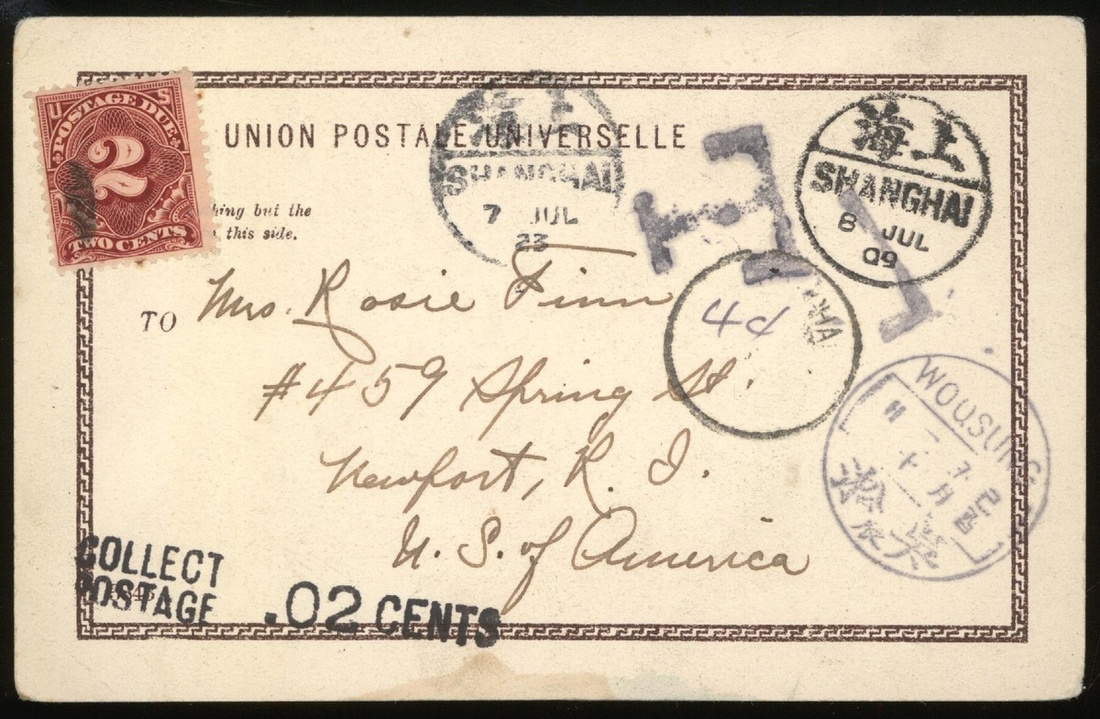 U S
POSTAGE DUE
2
TWO CENTS
UNION POSTALE UNIVERSELLE
but the
this side.
海上
SHANGHAI
7 JUL
海上
SHANGHAI
8 JUL
09
T
TO Mrs. Rosie Finn
#459 Spring St.
Newport, R. I.
U. S. of America
WOUSUNG
COLLECT
POSTAGE
.02 CENTS